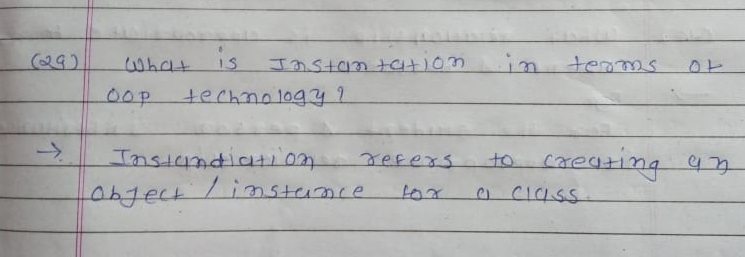 (29) What is Instantation in terms of
OOP technology?
→ Instandiation refers to creating an
object / instance for a class.